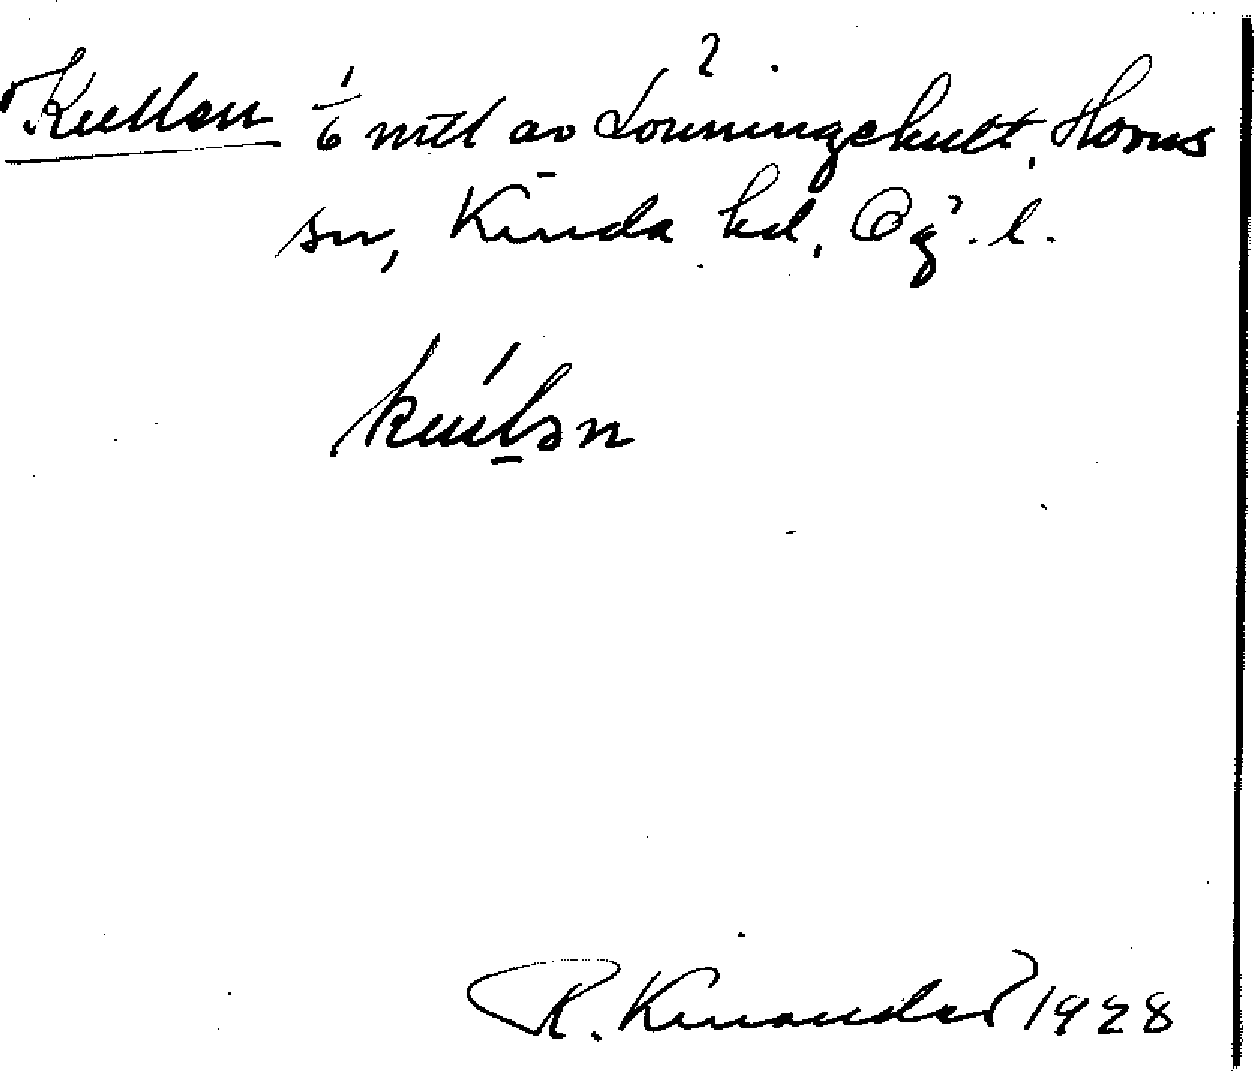 Kullen 1/6 mtl av Lönningehult, Horns
sn, Kinda hd, Ög. l.
R. Kinander 1928